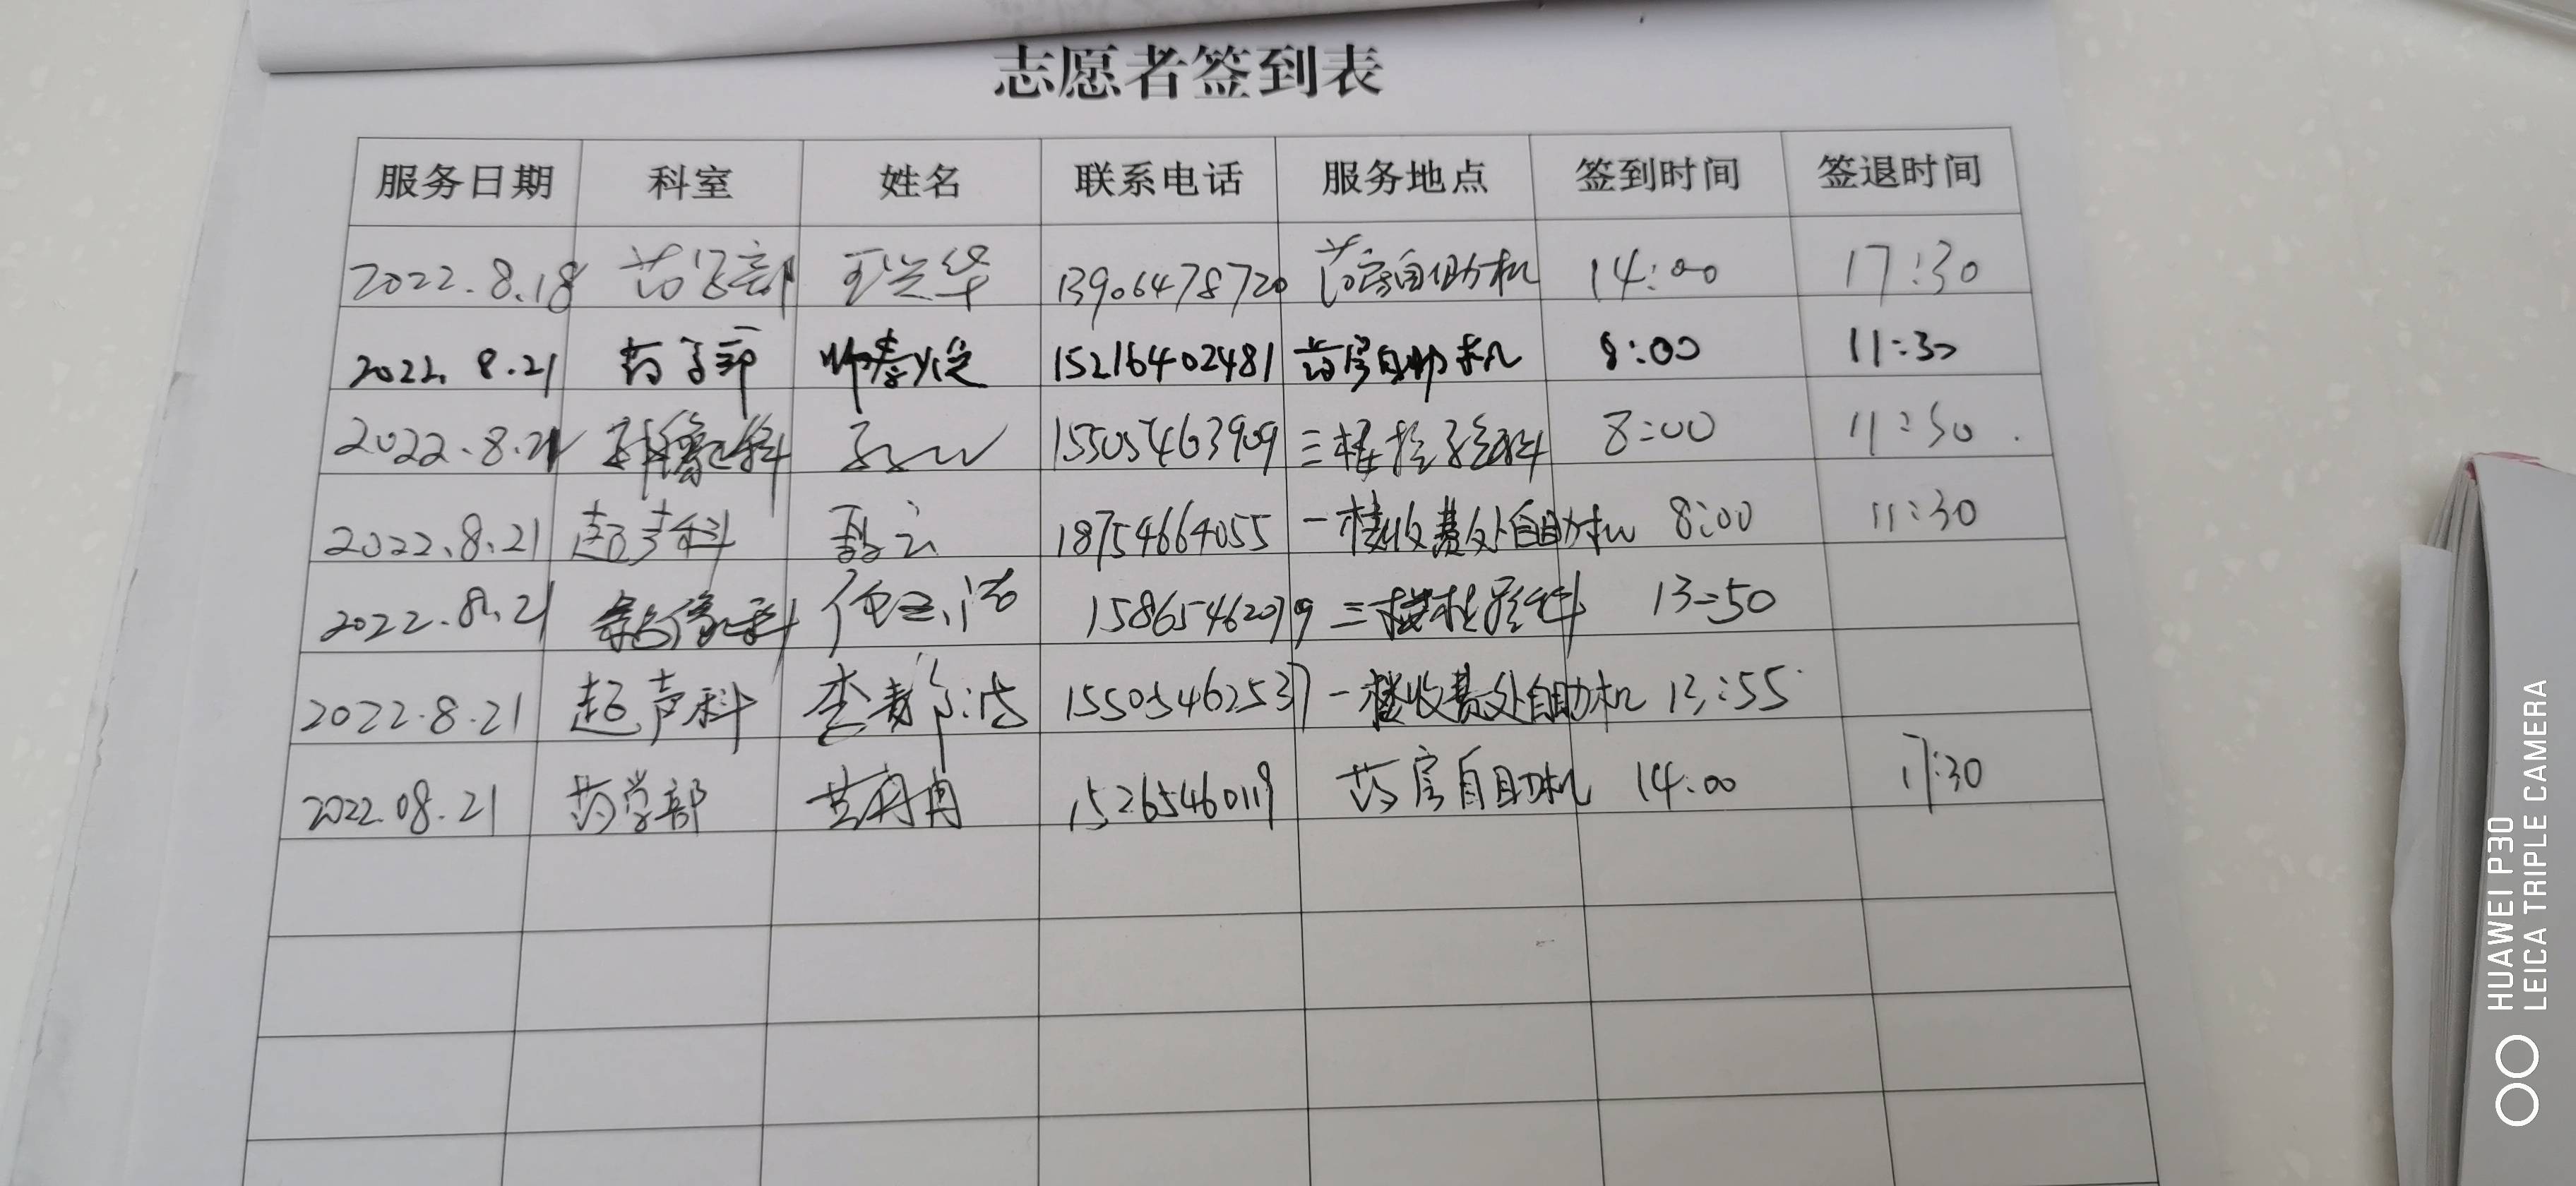 志愿者签到表
服务日期 科室 姓名 联系电话 服务地点 签到时间 签退时间
2022.8.18 药学部 王兰华 13906478720 药房自助机 14:00 17:30
2022.8.21 药学部 15216402481 药房自助机 8:00 11:30
2022.8.21 15505463909 三楼检验科 8:00 11:30
2022.8.21 超声科 18754664055 一楼收费处自助机 8:00 11:30
2022.8.21 影像科 15865462079 三楼检验科 13:50
2022.8.21 超声科 15505462537 一楼收费处自助机 13:55
2022.08.21 药学部 15265460119 药房自助机 14:00 17:30
HUAWEI P30
LEICA TRIPLE CAMERA